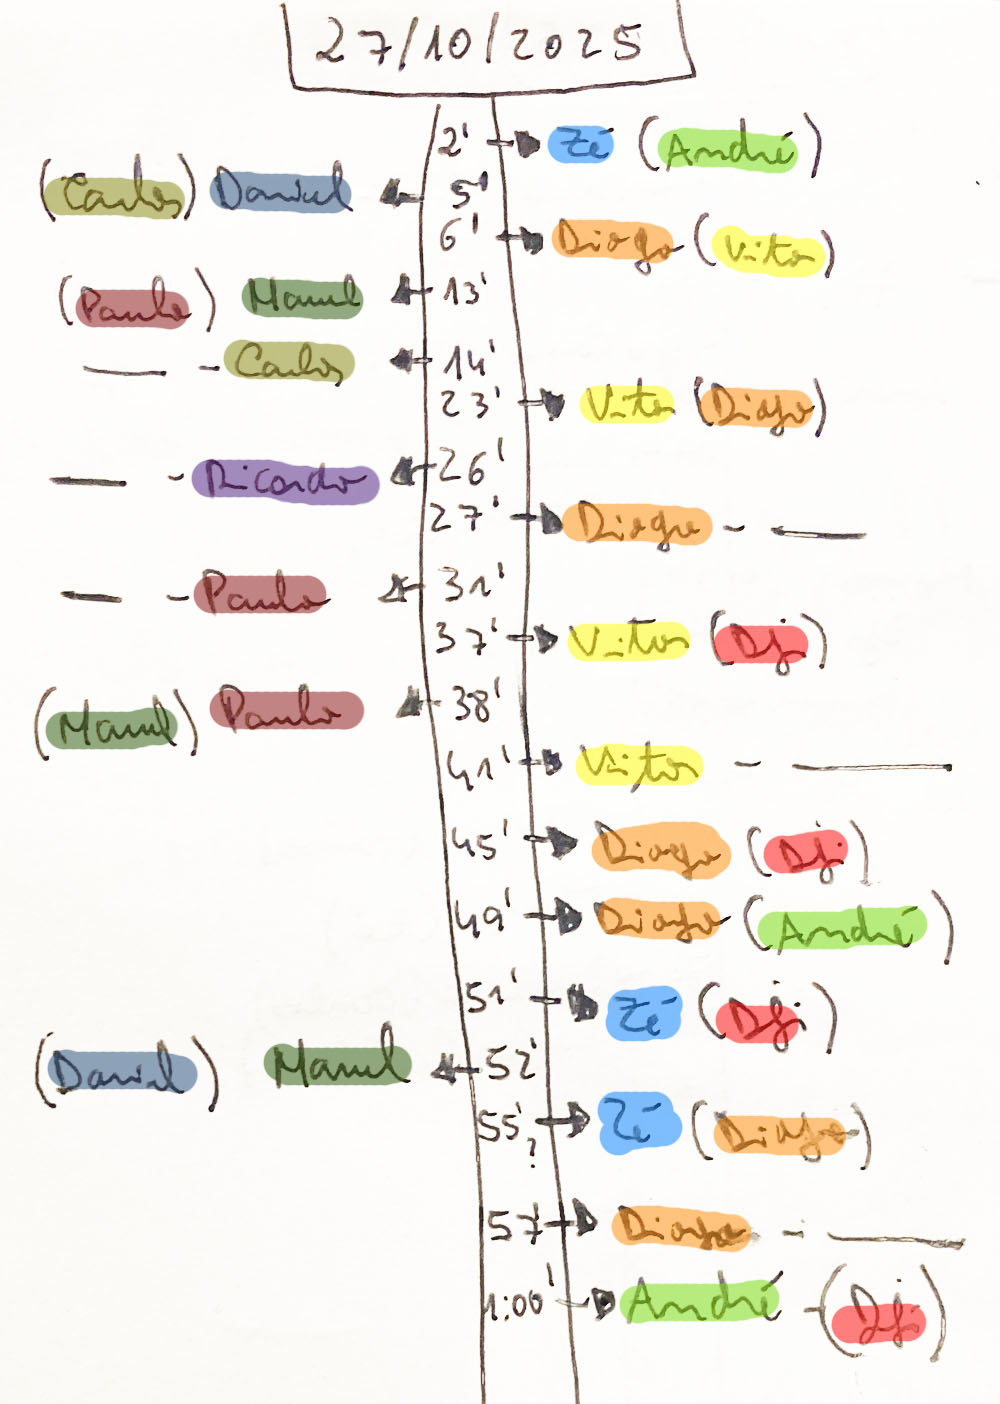 27/10/2025
2' Zé (André)
(Carlos) Daniel 5'
6' Diogo (Vitor)
(Paulo) Manel 13'
— - Carlos 14'
23' Vitor (Diogo)
— - Ricardo 26'
27' Diogo - —
— - Paulo 31'
37' Vitor (Dji)
(Manel) Paulo 38'
41' Vitor - —
45' Diogo (Dji)
49' Diogo (André)
51' Zé (Dji)
(Daniel) Manel 52'
55'? Zé (Diogo)
57' Diogo - —
1:00' André - (Dji)